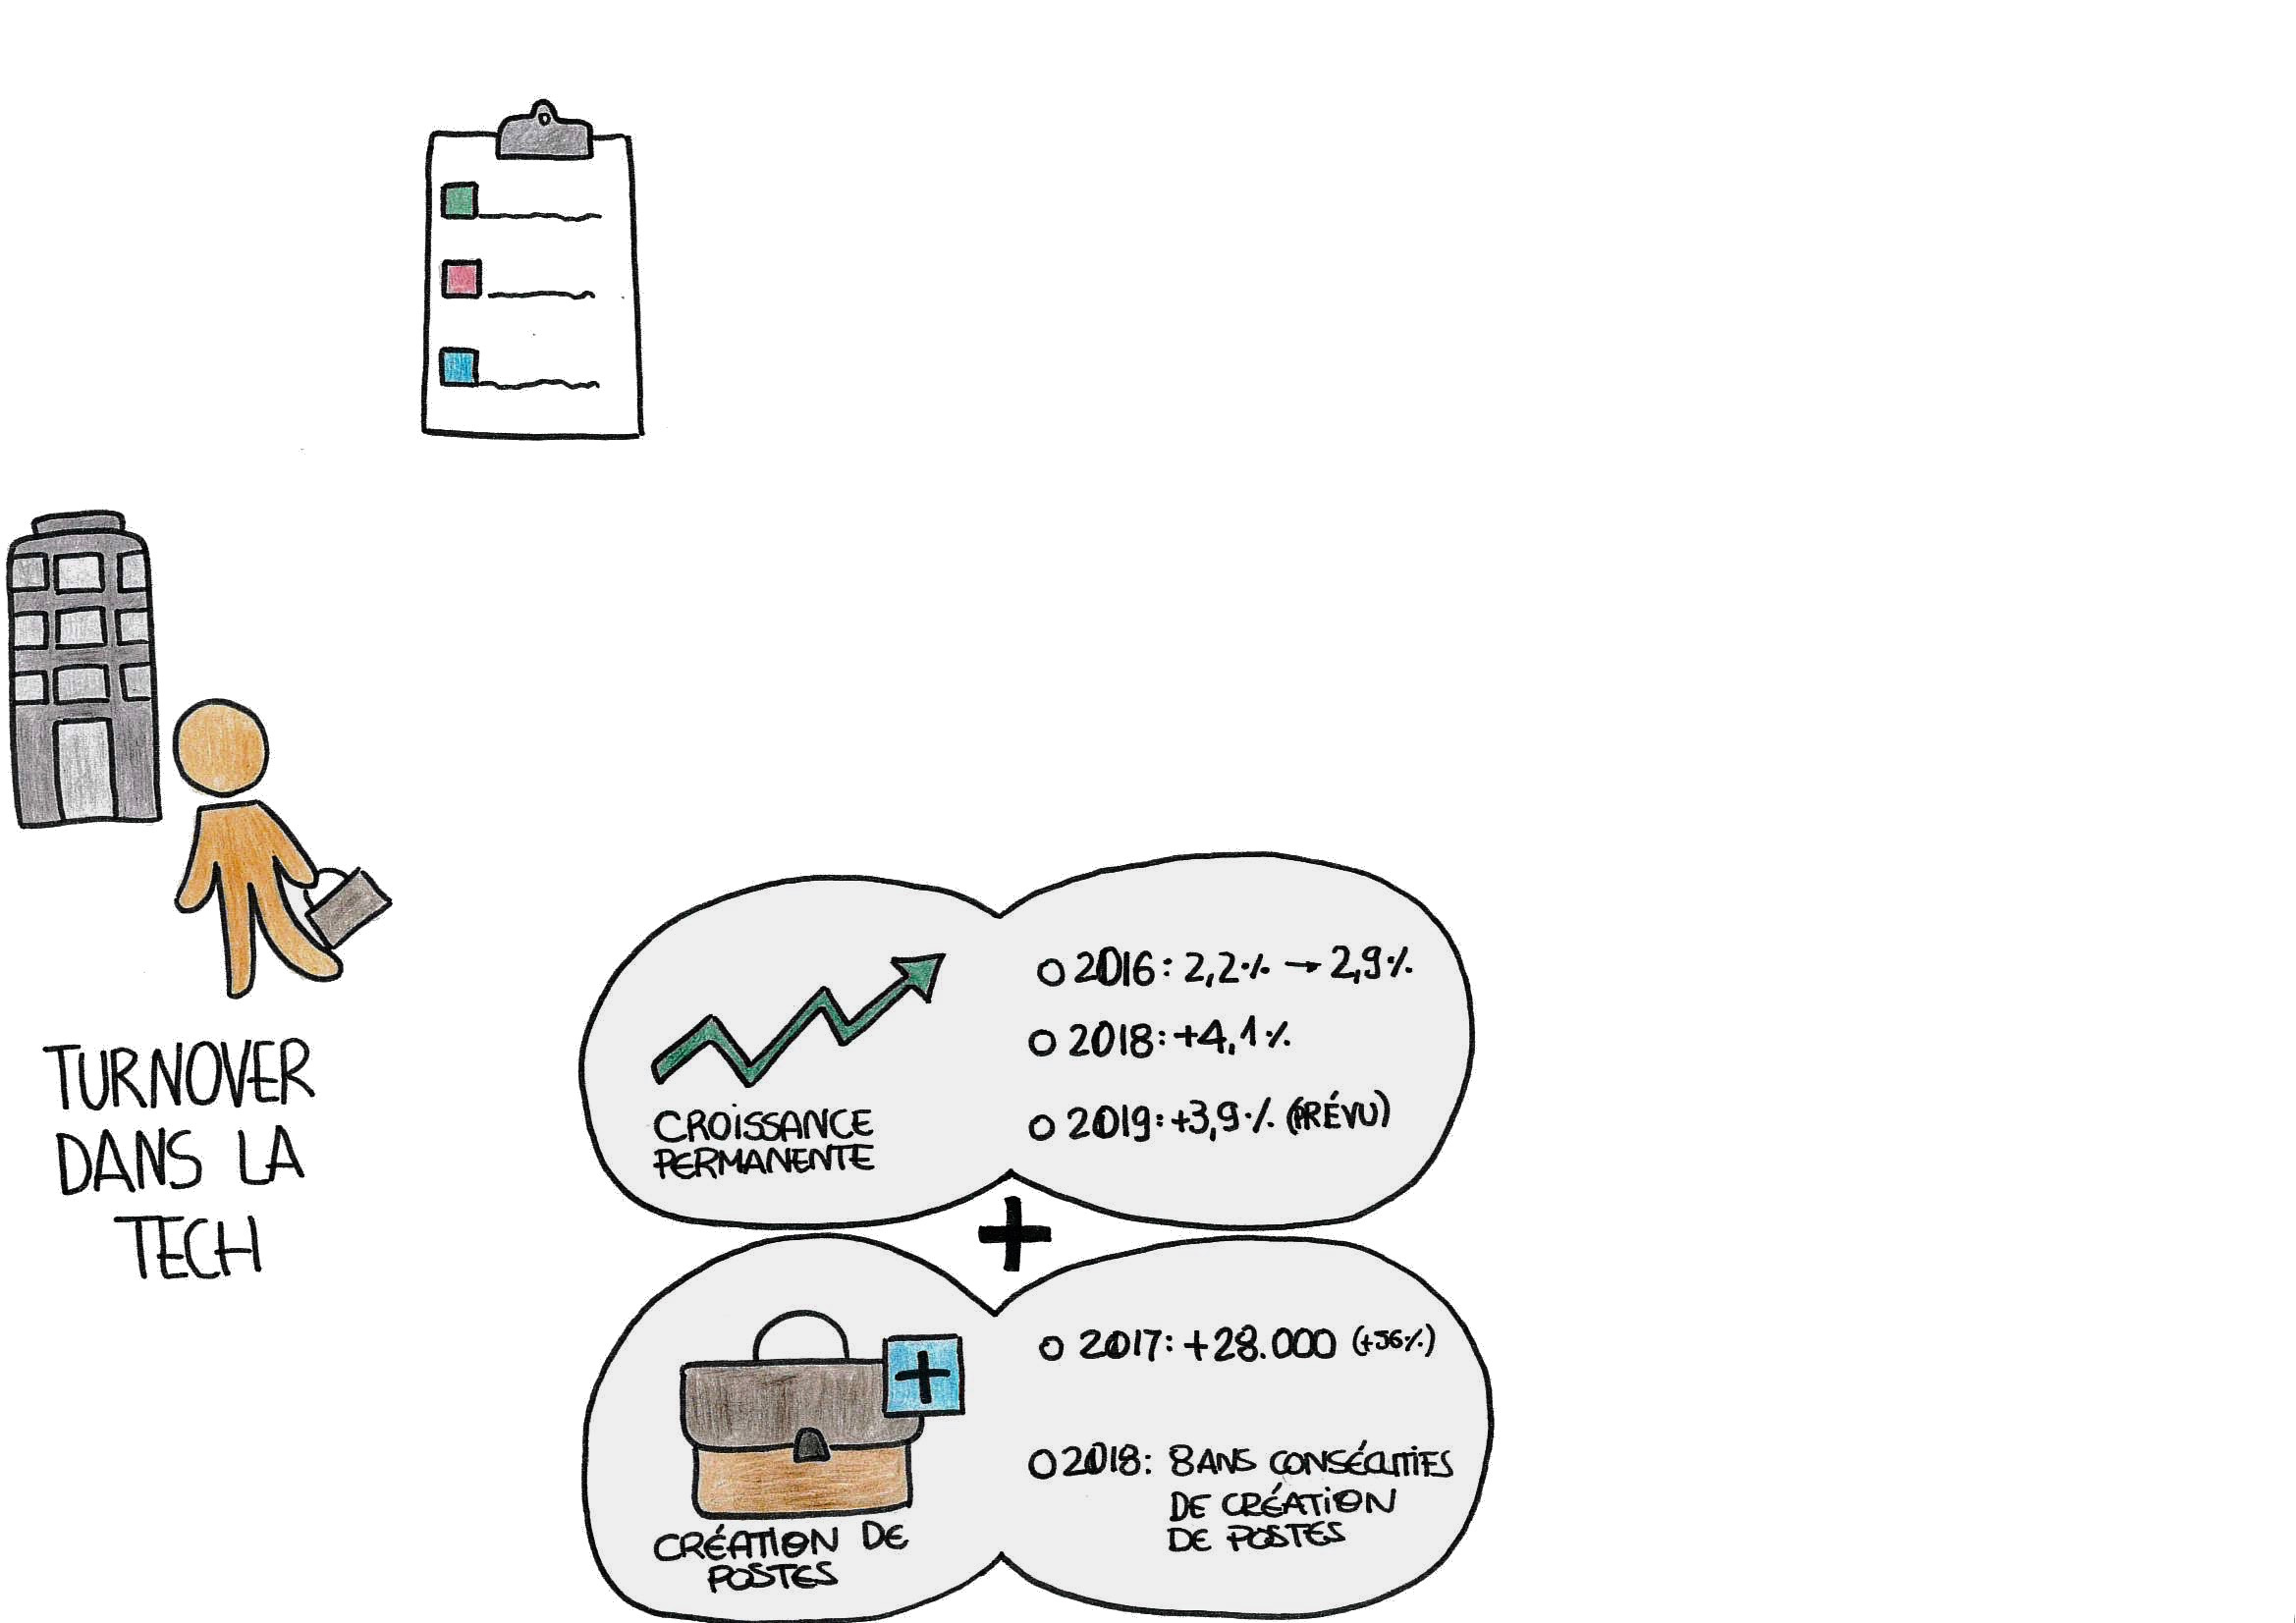 TURNOVER
DANS LA
TECH
CROISSANCE
PERMANENTE
2016: 2,2% → 2,9%
2018: +4,1%
2019: +3,9% (PRÉVU)
+
CRÉATION DE
POSTES
+
2017: +28.000 (+56%)
2018: 8 ANS CONSÉCUTIFS
DE CRÉATION
DE POSTES